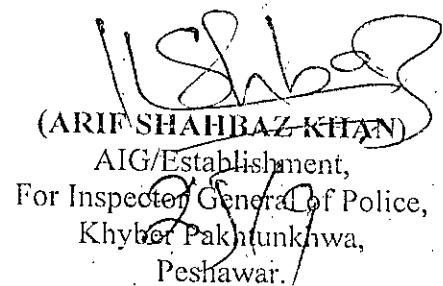 (ARIF SHAHBAZ KHAN)
AIG/Establishment,
For Inspector General of Police,
25/9
Khyber Pakhtunkhwa,
Peshawar.